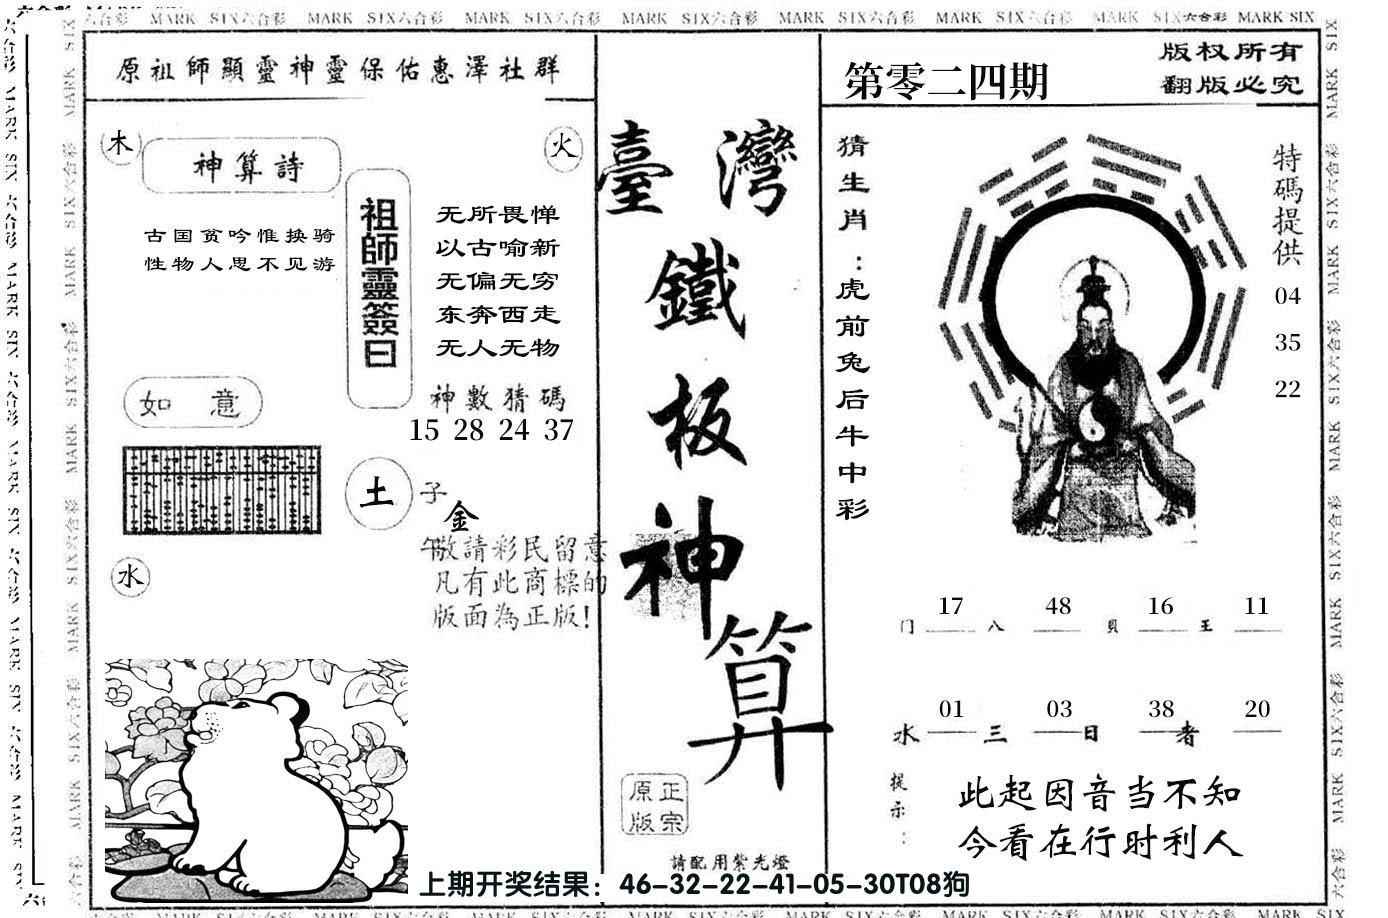 原祖師顯靈神靈保佑惠澤社群
木
神算詩
火
古国贫吟惟换骑
性物人思不见游
祖師靈簽曰
无所畏惮
以古喻新
无偏无穷
东奔西走
无人无物
如 意
神數猜碼
15 28 24 37
土
子
金
午
敬請彩民留意
凡有此商標的
版面為正版!
水
臺灣
鐵
板
神
算
正宗
原版
請配用紫光燈
上期开奖结果：46-32-22-41-05-30T08狗
第零二四期
版权所有
翻版必究
猜生肖：虎前兔后牛中彩
特碼提供
04
35
22
门 17 八 48 貝 16 王 11
水 01 三 03 日 38 者 20
提示：
此起因音当不知
今看在行时利人
MARK SIX六合彩 MARK SIX六合彩 MARK SIX六合彩 MARK SIX六合彩 MARK SIX六合彩 MARK SIX六合彩 MARK SIX六合彩 MARK SIX